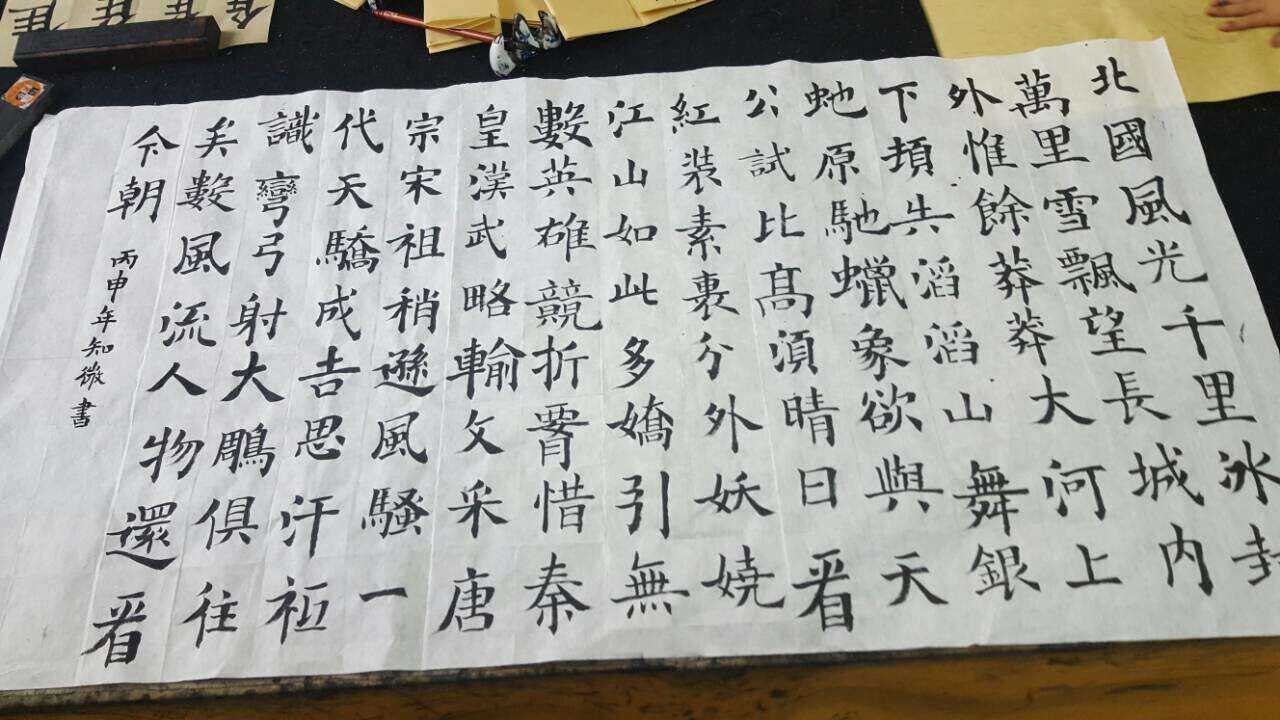 北國風光千里冰封
萬里雪飄望長城内
外惟餘莽莽大河上
下頓失滔滔山舞銀
虵原馳蠟象欲與天
公試比髙須晴日看
紅裝素裹分外妖嬈
江山如此多嬌引無
數英雄競折腰惜秦
皇漢武略輸文采唐
宗宋祖稍遜風騷一
代天驕成吉思汗祇
識彎弓射大鵰俱往
矣數風流人物還看
今朝
丙申年知微書